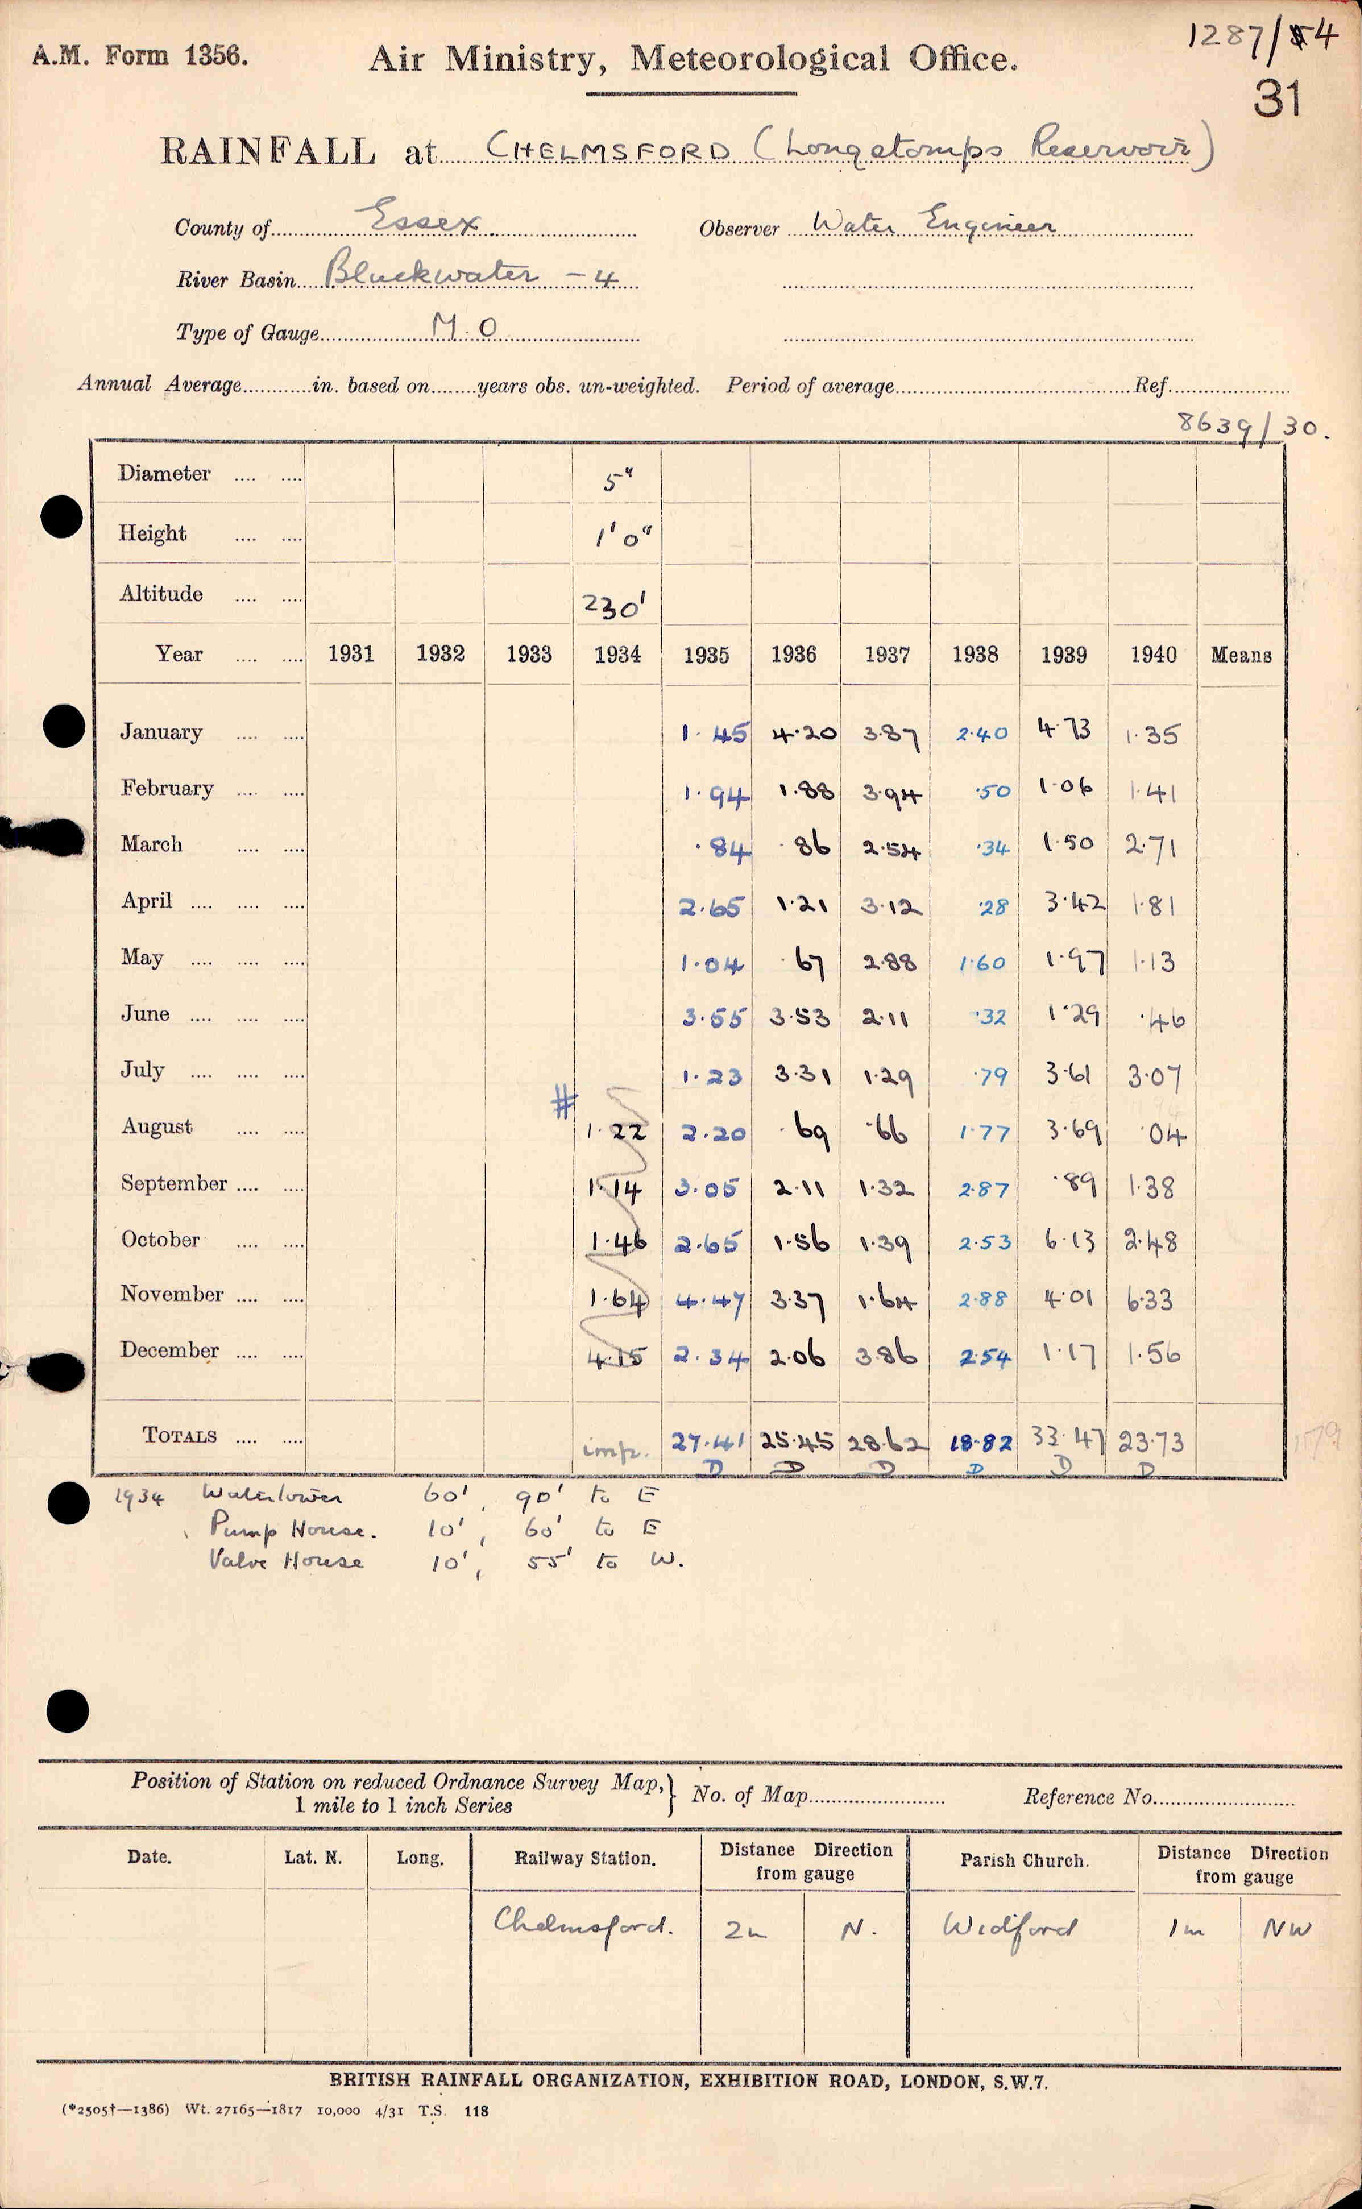 1287/54
A.M. Form 1356. Air Ministry, Meteorological Office.
31
RAINFALL at CHELMSFORD (Longstomps Reservoir)
County of Essex Observer Water Engineer
River Basin Blackwater - 4
Type of Gauge M.O
Annual Average in. based on years obs. un-weighted. Period of average Ref.
8639/30.
Diameter 5"
Height 1' 0"
Altitude 230'
Year 1931 1932 1933 1934 1935 1936 1937 1938 1939 1940 Means
January 1.45 4.20 3.87 2.40 4.73 1.35
February 1.94 1.88 3.94 .50 1.06 1.41
March .84 .86 2.54 .34 1.50 2.71
April 2.65 1.21 3.12 .28 3.42 1.81
May 1.04 .67 2.88 1.60 1.97 1.13
June 3.55 3.53 2.11 .32 1.29 .46
July 1.23 3.31 1.29 .79 3.61 3.07
#
August 1.22 2.20 .69 .66 1.77 3.69 .04
September 1.14 3.05 2.11 1.32 2.87 .89 1.38
October 1.46 2.65 1.56 1.39 2.53 6.13 2.48
November 1.64 4.47 3.37 1.64 2.88 4.01 6.33
December 4.15 2.34 2.06 3.86 2.54 1.17 1.56
TOTALS imp. 27.41 25.45 28.62 18.82 33.47 23.73
D D D D D D
1934 Watertower 60', 90' to E
Pump House. 10', 60' to E
Valve House 10', 55' to W.
Position of Station on reduced Ordnance Survey Map, No. of Map Reference No.
1 mile to 1 inch Series
Date. Lat. N. Long. Railway Station. Distance Direction from gauge Parish Church. Distance Direction from gauge
Chelmsford. 2m N. Widford 1m NW
BRITISH RAINFALL ORGANIZATION, EXHIBITION ROAD, LONDON, S.W.7.
(*2505†—1386) Wt. 27165—1817 10,000 4/31 T.S. 118